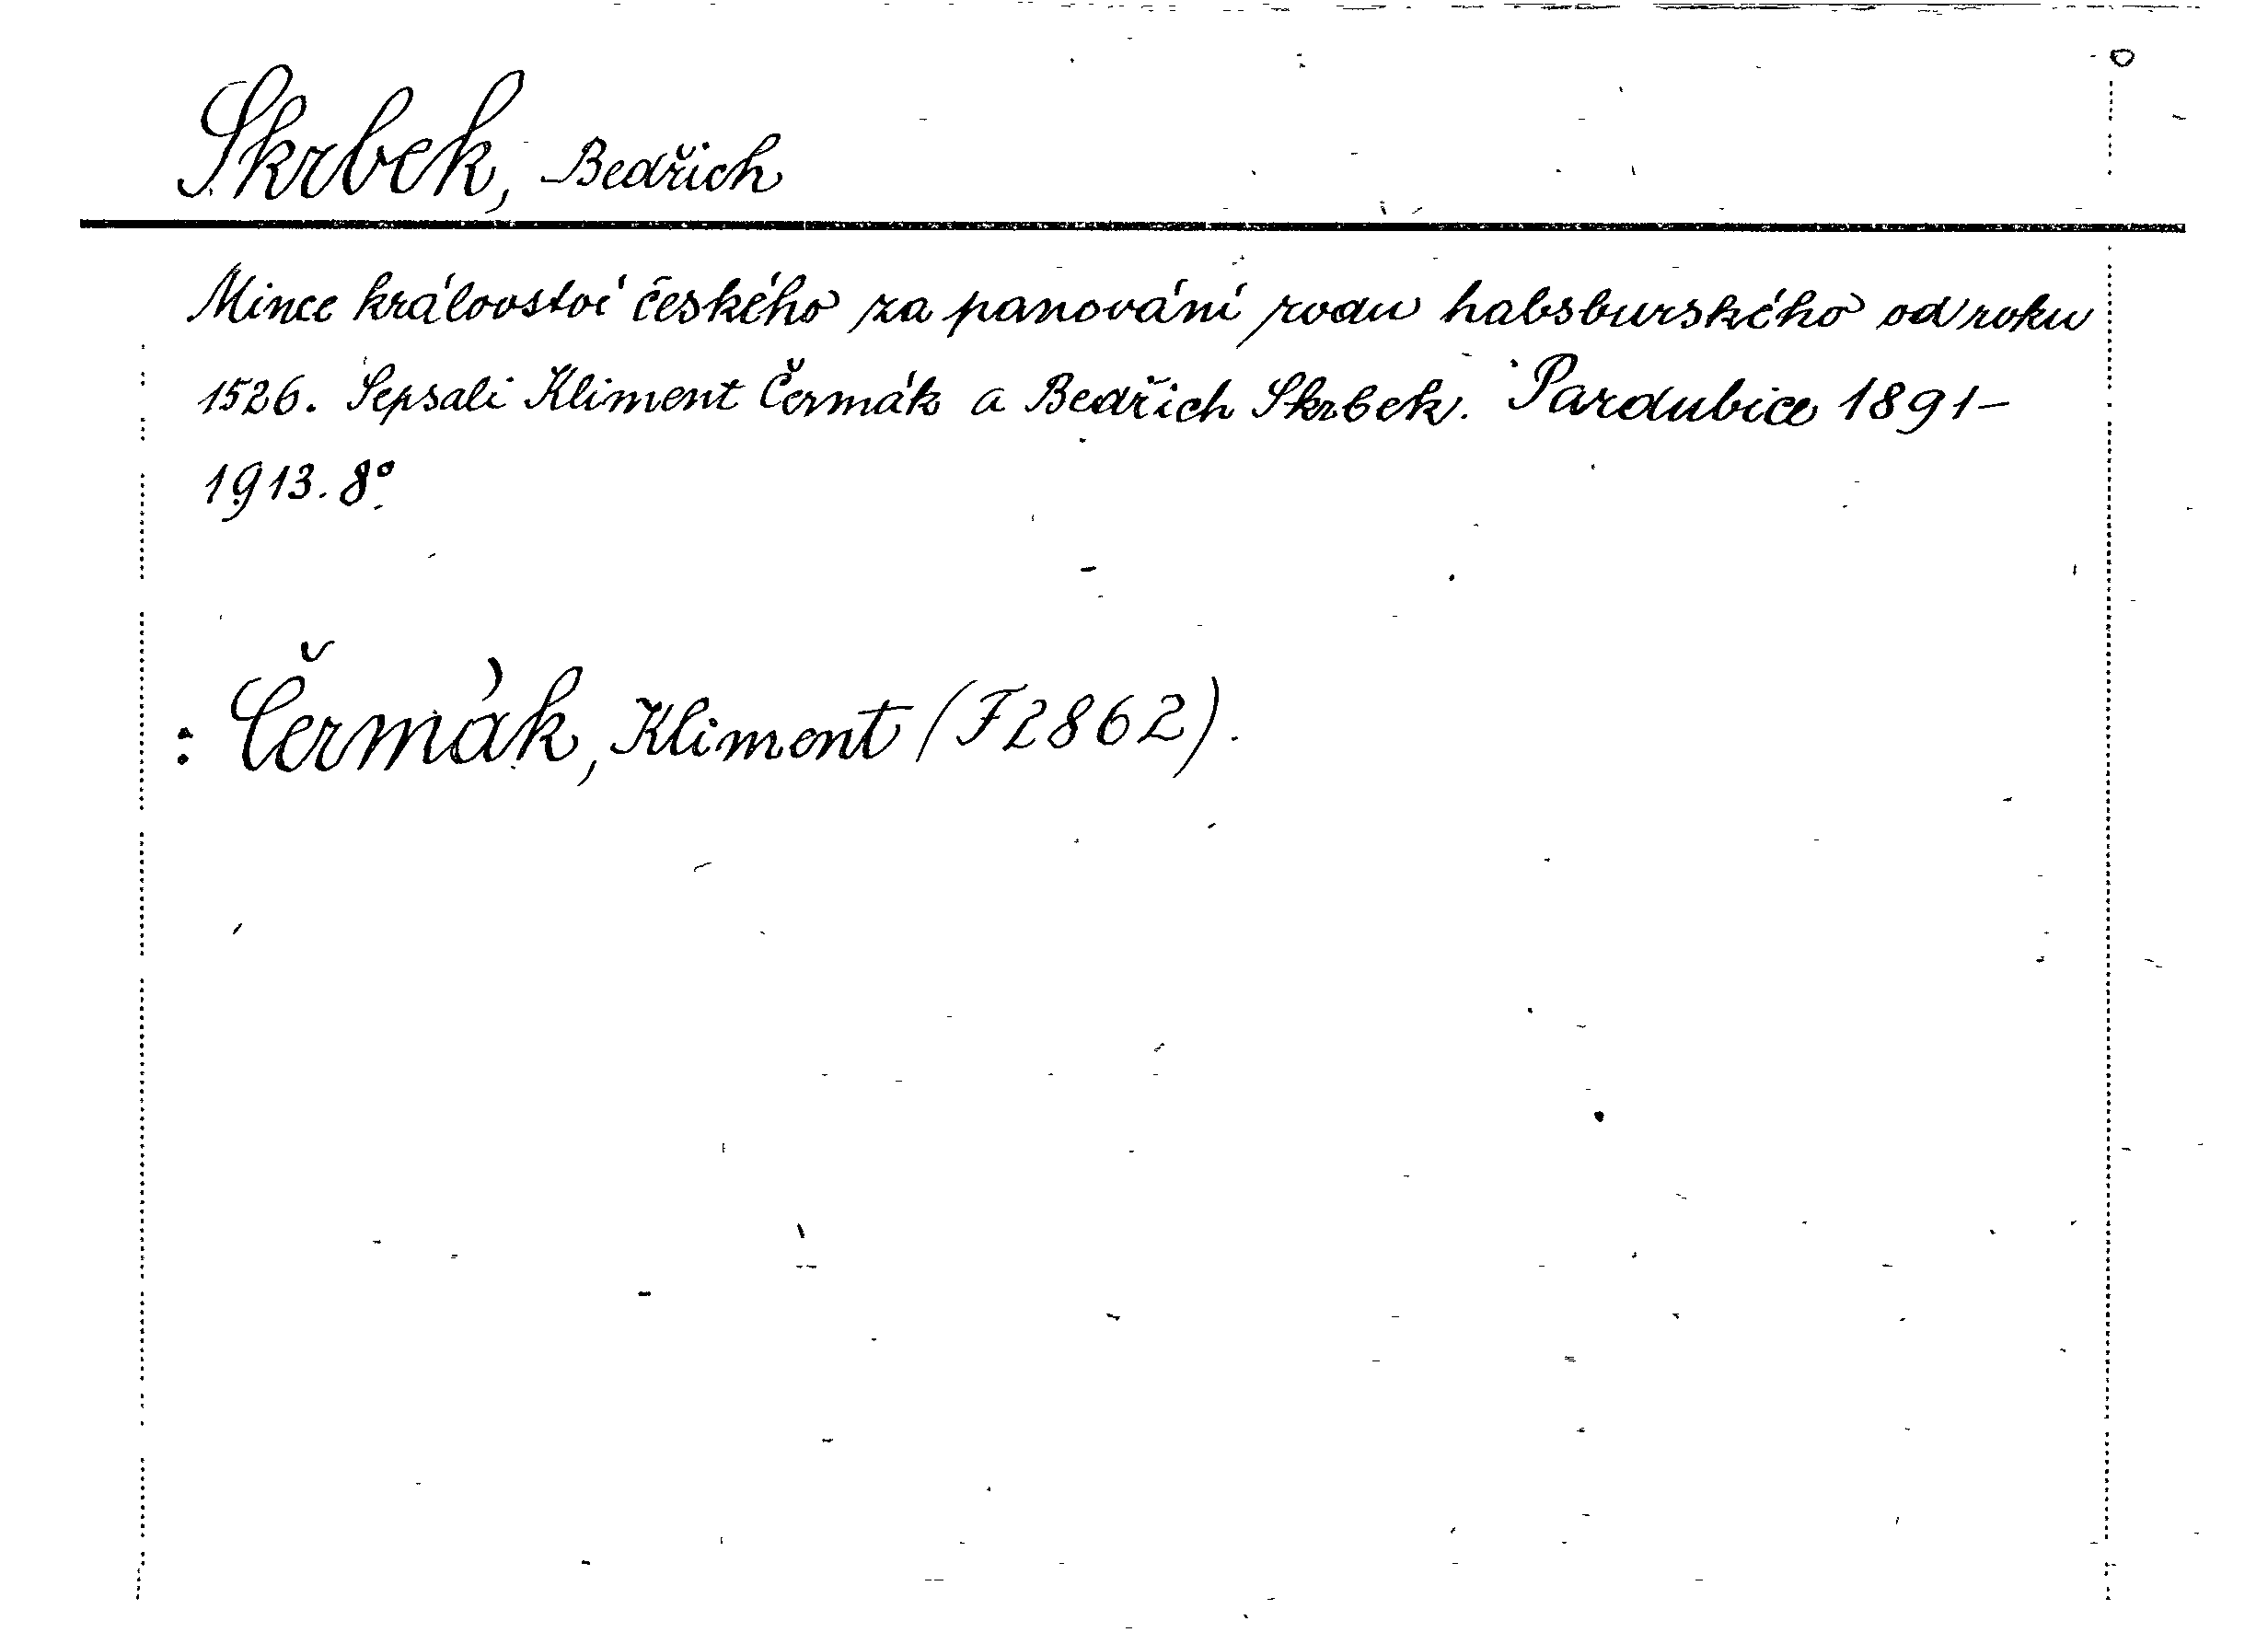 Skrbek, Bedřich
Mince království českého za panování rodu habsburského od roku
1526. Sepsali Kliment Čermák a Bedřich Skrbek. Pardubice 1891–
1913. 8°.
: Čermák, Kliment (F2862).